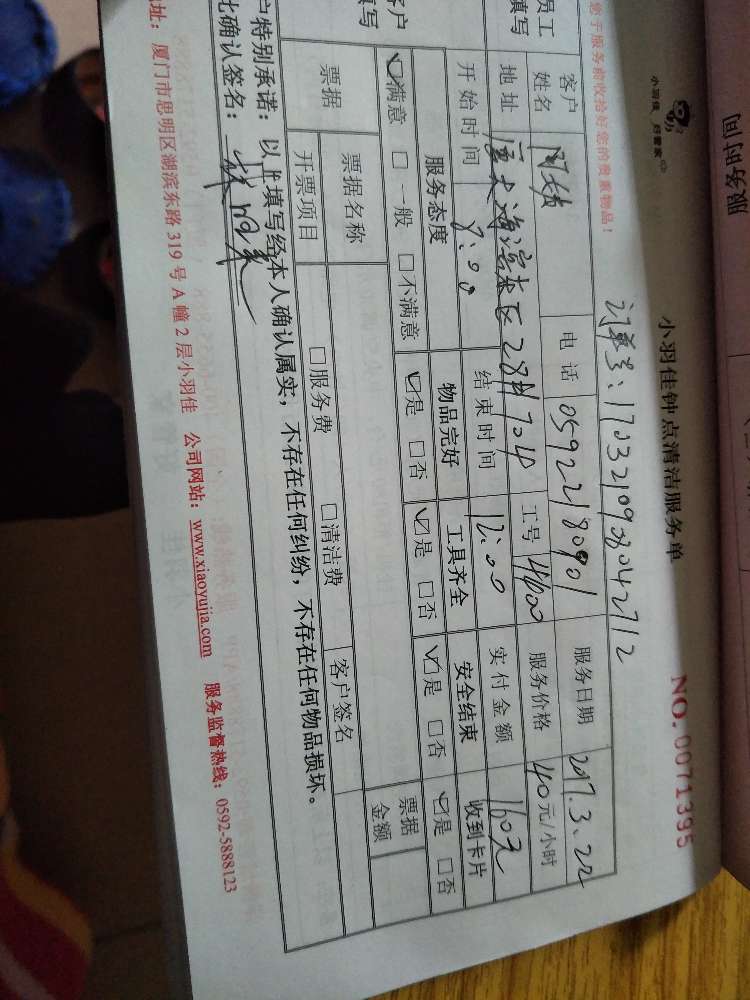 服务时间
小羽佳 好管家
小羽佳钟点清洁服务单
NO. 0071395
订单号:1703210908042712
您于服务前收拾好您的贵重物品!
员工
填写
客户
姓名
电话 05922180901
服务日期 2017.3.22
地址 厦大海滨东区28#704
工号 4600
服务价格 40元/小时
开始时间 8:00
结束时间 12:00
实付金额 160元
客户
填写
服务态度 物品完好 工具齐全 安全结束 收到卡片
☑满意 □一般 □不满意 ☑是 □否 ☑是 □否 ☑是 □否 ☑是 □否
票据 票据名称 票据
金额
开票项目 □服务费 □清洁费 客户签名
户特别承诺:以上填写经本人确认属实,不存在任何纠纷,不存在任何物品损坏。
比确认签名:
址:厦门市思明区湖滨东路 319 号 A 幢 2 层小羽佳 公司网站:www.xiaoyujia.com 服务监督热线:0592-5888123